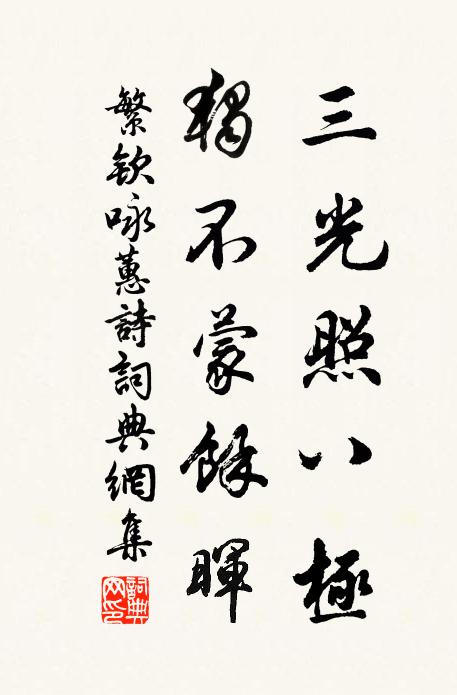 三光照八極
獨不蒙餘暉
繁欽咏蕙詩詞典網集
詞典网印